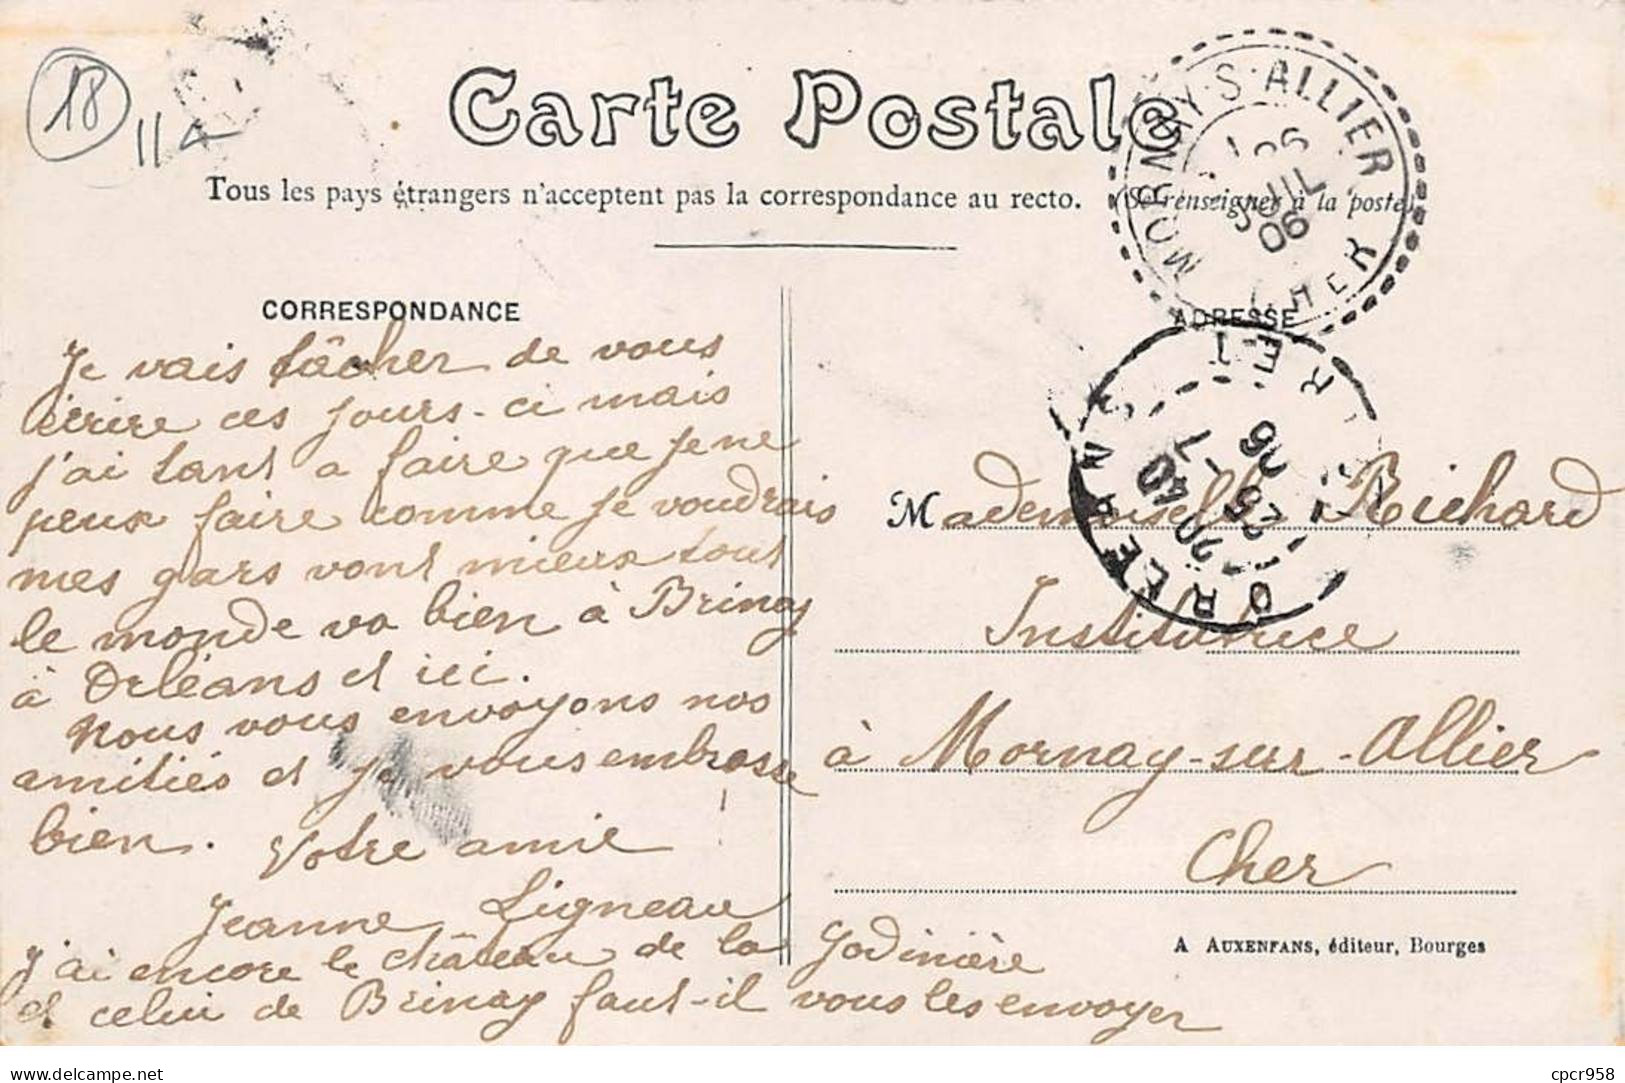 18
11
Carte Postale
Tous les pays étrangers n'acceptent pas la correspondance au recto. (Se renseigner à la poste)
MORNAY-S-ALLIER
26
JUIL
06
CHER
CORRESPONDANCE
Je vais tâcher de vous
écrire ces jours-ci mais
j'ai tant a faire que je ne
peux faire comme je voudrais
mes gars vont mieux tout
le monde va bien à Brinay
à Orléans et ici.
Nous vous envoyons nos
amitiés et je vous embrasse
bien. Votre amie
Jeanne Ligneau
J'ai encore le château de la Godinière
et celui de Brinay faut-il vous les envoyer
ADRESSE
ORLEANS
20 40
25 -7
06
Mademoiselle Richard
Institutrice
à Mornay-sur-Allier
Cher
A AUXENFANS, éditeur, Bourges
delcampe.net
cpcr958